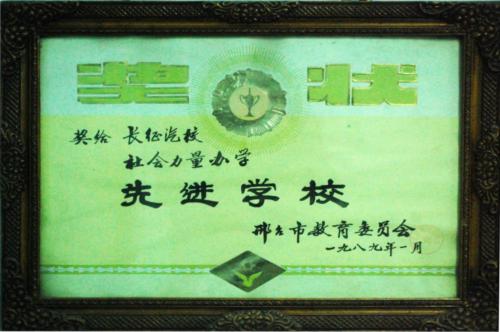 奖状
奖给 长征汽校
社会力量办学
先进学校
邢台市教育委员会
一九八九年一月